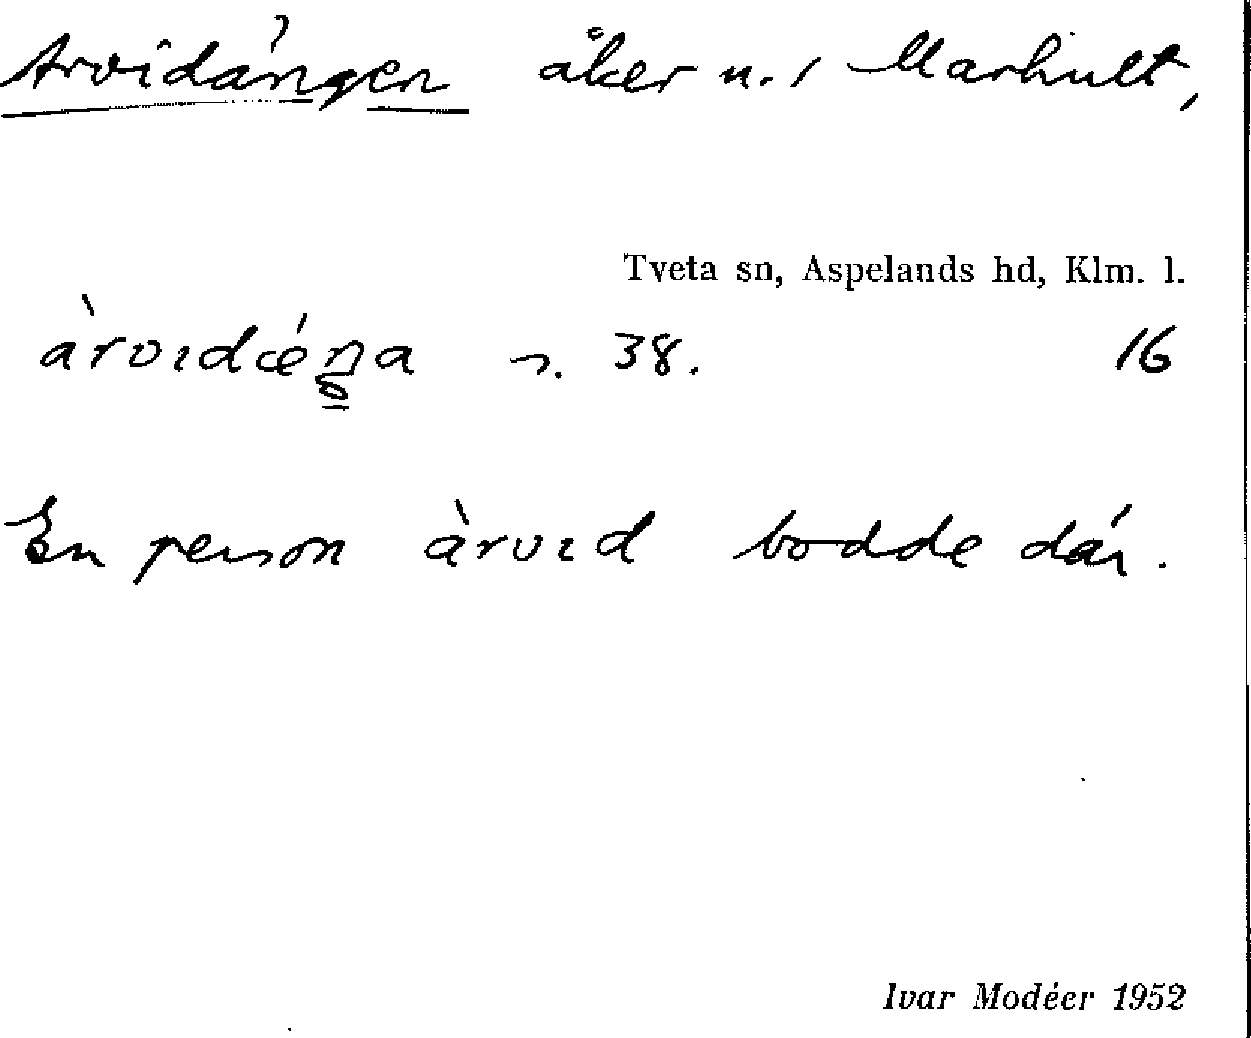 Arvidängen åker u. / Marhult,
Tveta sn, Aspelands hd, Klm. l.
àrvıdǽŋa n. 38. 16
En person àrvıd bodde där.
Ivar Modéer 1952